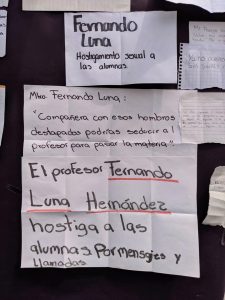 Fernando
Luna
Hostigamiento sexual a
las alumnas.
Mtro. Fernando Luna:
"Compañera con esos hombros
destapados podrías seducir al
profesor para pasar la materia."
El profesor Fernando
Luna Hernández
hostiga a las
alumnas por mensajes y
llamadas